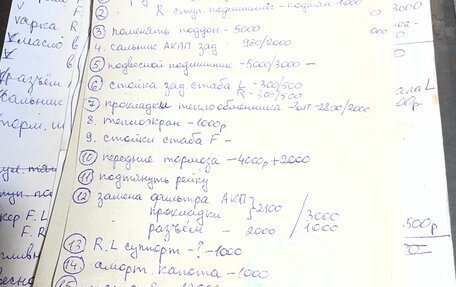 ② R ступ. подшипник - поднят - 1000
③ поменять поддон - 5000
4. сальник АКПП зад. - 980/2000
⑤ подвесной подшипник - 5000/3000 -
⑥ стойка зад стаба L - 300/500
R - 300/500
⑦ прокладки теплообменника - 2200/2000
8. теплоэкран - 1000р
9. стойки стаба F -
⑩ передние тормоза - 4000р + 2000
⑪ подтянуть рейку
⑫ замена фильтра АКП
прокладки } 2100 / 3000
разъём - 2000 / 1000
⑬ R.L суппорт - ? - 1000
14. аморт. капота - 1000
15
F
варка R
масло в
в
разъём
сальник
торм.
F. L
F. R
3000
0
0
L
00р.
500р
0